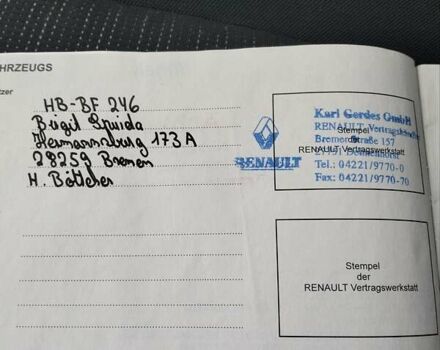 HRZEUGS
tzer
HB-BF 246
Birgit Spuida
Hermannsburg 173A
28259 Bremen
H. Böttcher
RENAULT
Karl Gerdes GmbH
RENAULT Vertragshändler
Bremer Straße 157
27751 Delmenhorst
Tel.: 04221/9770-0
Fax: 04221/9770-70
Stempel
der
RENAULT Vertragswerkstatt
Stempel
der
RENAULT Vertragswerkstatt